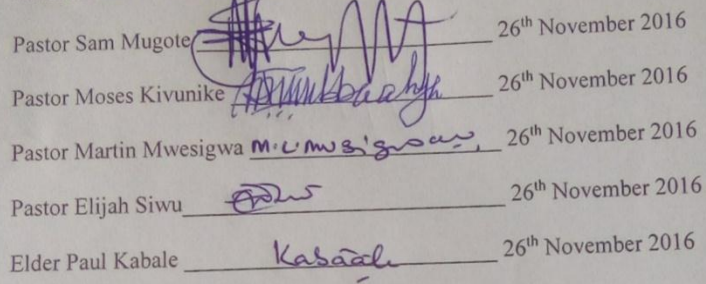 Pastor Sam Mugote 26th November 2016
Pastor Moses Kivunike 26th November 2016
Pastor Martin Mwesigwa 26th November 2016
Pastor Elijah Siwu 26th November 2016
Elder Paul Kabale 26th November 2016